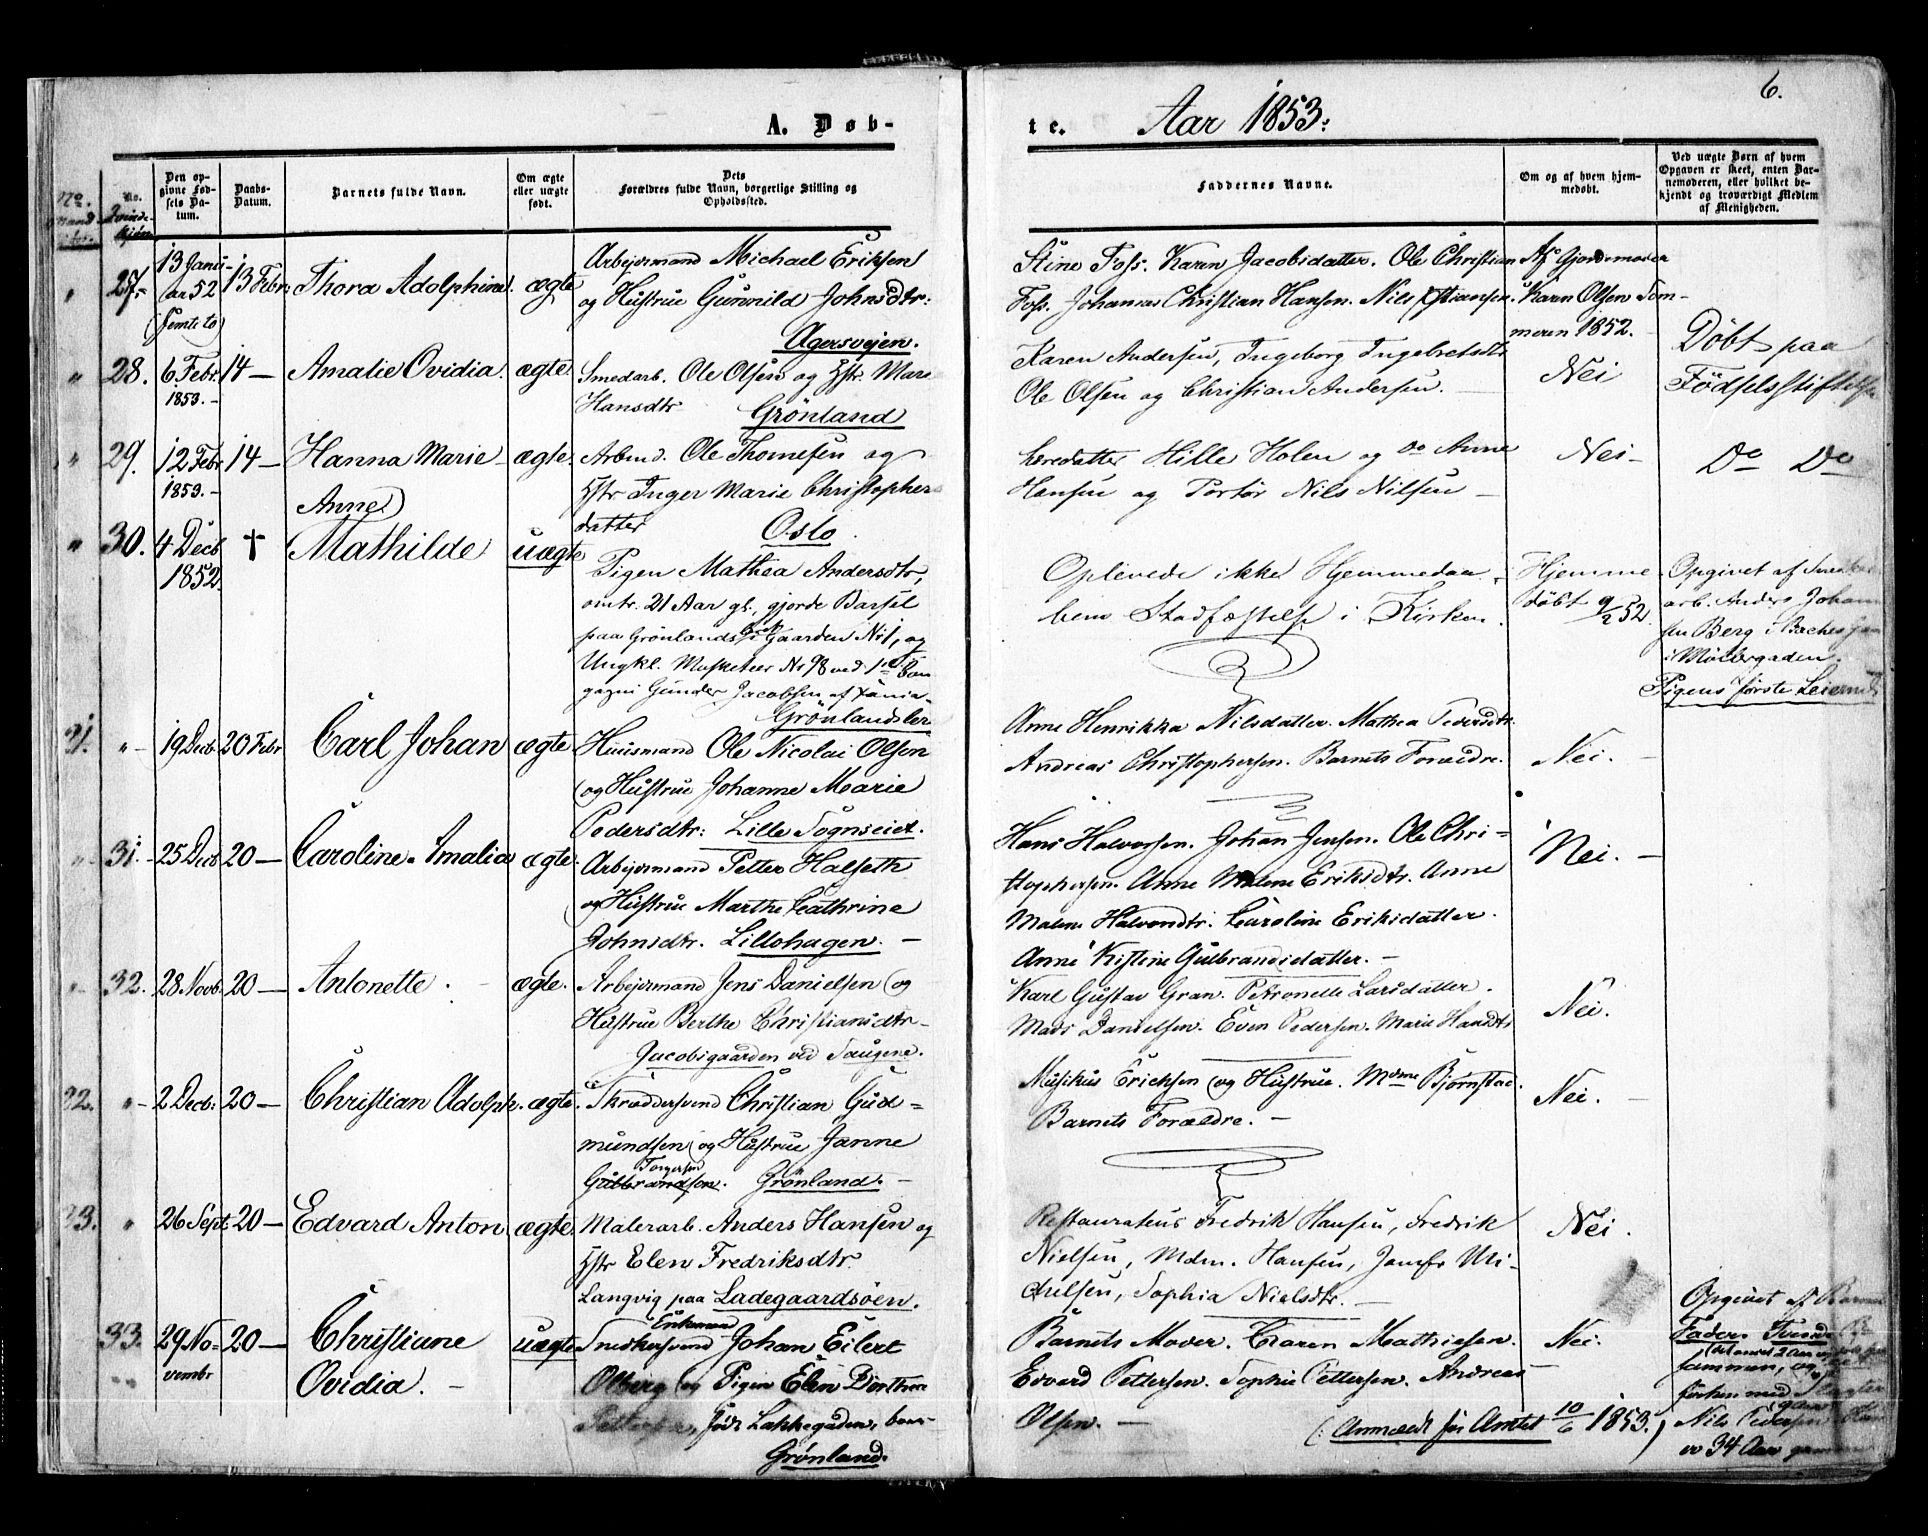 6.
A. Døb-
te. Aar 1853.
No. Mand- kjøn.
No. Qvinde- kjøn
Den op- givne Fød- sels Da- tum.
Daabs- Datum.
Barnets fulde Navn.
Om ægte eller uægte født.
Dets Forældres fulde Navn, borgerlige Stilling og Opholdssted.
Faddernes Navne.
Om og af hvem hjem- medøbt.
Ved uægte Børn af hvem Opgaven er skeet, enten Bar- nemoderen, eller hvilket be- kjendt og troværdigt Medlem af Menigheden.
" 27. 13 Janu- ar 52 (Femti to) 13 Febr. Thora Adolphine. ægte
Arbejdsmand Michael Eriksen
og Hustrue Gunnild Johnsdtr:
Agersvejen.
Stine Foss. Karen Jacobsdatter. Ole Christian
Foss. Johannes Christian Hansen. Nils Christiansen.
Af Gjordemoder
Karen Olsen Som-
meren 1852.
" 28. 6 Febr 1853. 14 — Amalie Ovidia. ægte.
Smedarb. Ole Olsen og Hstr. Mari
Hansdtr Grönland
Karen Andersen, Ingeborg Ingebretsdtr
Ole Olsen og Christian Andersen.
Nei
Döbt paa
Födselsstiftelse
" 29. 12 Febr 1853. 14 — Hanna Marie Anne ægte.
Arbmd. Ole Thomesen og
Hstr Inger Marie Christopher
datter Oslo.
Hille Holen og do Anne
Hansen og Portör Nils Nilsen —
Nei —
Do Do
" 30. 4 Decb 1852. † Mathilde uægte
Pigen Mathea Andersdtr,
omtr. 21 Aar gl., gjorde Barsel
paa Grönlands Gaarden No 1, og
Ungkl. Musketeer No 98 ved 1ste Com
pagni Gunder Jacobsen af
Grönlandsler
Oplevede ikke Hjemmedaa-
bens Stadfæstelse i Kirken.
Hjemme
döbt 9/2 52.
Opgivet af
arb. Anders Johan
sen Berg i Baches
i Möllergaden.
Pigens förste Leierm
31. " 19 Decb. 20 Febr Carl Johan ægte.
Huusmand Ole Nicolai Olsen
og Hustrue Johanne Marie
Pedersdtr: Lille Sognseiet.
Anne Henrikka Nilsdatter. Mathea Pedersdtr.
Andreas Christophersen. Barnets Forældre.
Nei. —
" 31. 25 Decb 20 — Caroline Amalia ægte.
Arbejdsmand Petter Halseth
og Hustrue Marthe Cathrine
Johnsdtr. Lillohagen. —
Hans Halvorsen. Johan Jensen. Ole Chri-
stophersen. Anne Malene Eriksdtr. Anne
Malene Halvorsdtr. Caroline Eriksdatter.
Anne Kistine Gulbrandsdatter. —
Nei. —
" 32. 28 Novb. 20 — Antonette. ægte.
Arbejdsmand Jens Danielsen og
Hustrue Berthe Christiansdtr —
Jacobsgaarden ved Saugene.
Karl Gustav Gran. Petronelle Larsdatter.
Mads Danielsen. Even Pedersen. Marie Hansdtr
Nei.
32. " 2 Decb: 20 — Christian Adolph. ægte.
Skræddersvend Christian Gud=
mundsen og Hustrue Janne
Torgersen
Gulbrandsen. Grönland. —
Musikus Ericksen og Hustrue. Mdme Bjørnstad.
Barnets Forældre. —
Nei. —
33. " 26 Sept. 20 — Edvard Anton. ægte.
Malerarb. Anders Hansen og
Hstr Elen Fredriksdtr.
Langvig paa Ladegaardsöen.
Restaurateur Fredrik Hansen, Fredrik
Nielsen, Mdm. Hansen, Jomfr Mi-
chelsen, Sophia Nielsdtr. —
Nei.
33. 29 No- vembr 20 — Christiane Ovidia. — uægte
Enkemand
Snedkersvend Johan Eilert
Olberg og Pigen Elen Dorthea
Pettersen, födt Lakkegaden, boer
Grønland.
Barnets Moder. Karen Mathiesen.
Edvard Pettersen. Sophie Pettersen. Andreas
Olsen. — (: Anmeldt for Amtet 10/6 1853.)
Nei.
Opgivet af Barnets
Fader.
sammen, og
förhen med
Nils Pedersen
34 Aar gammel